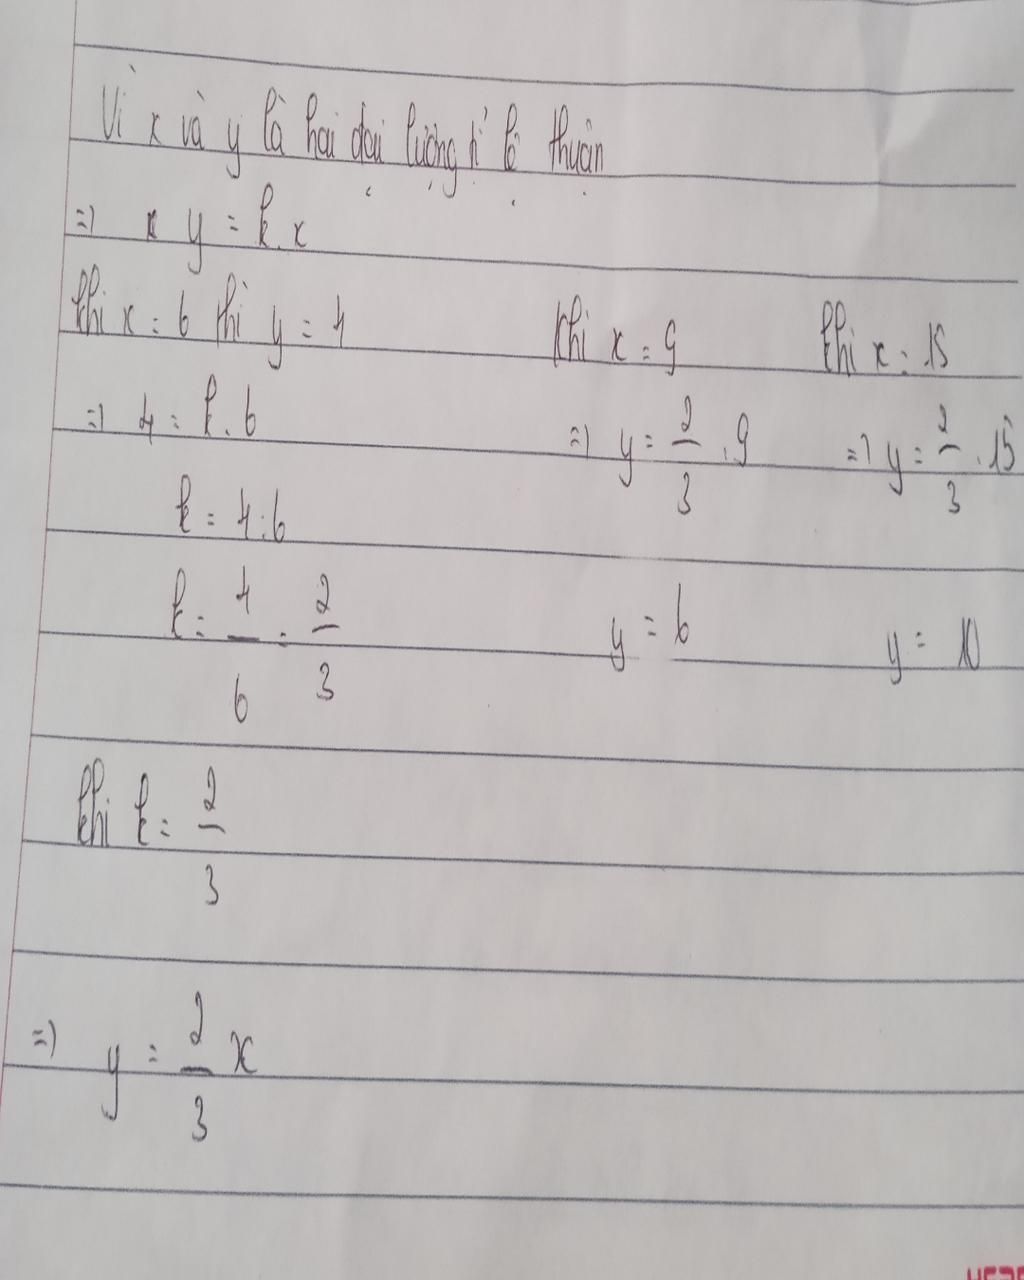 Vì x và y là hai đại lượng tỉ lệ thuận
=> x y = k.x
khi x = 6 thì y = 4
=> 4 = k.6
k = 4:6
k = 4/6 = 2/3
khi k = 2/3
=> y = 2/3 x
Khi x = 9
=> y = 2/3 .9
y = 6
khi x = 15
=> y = 2/3 .15
y = 10